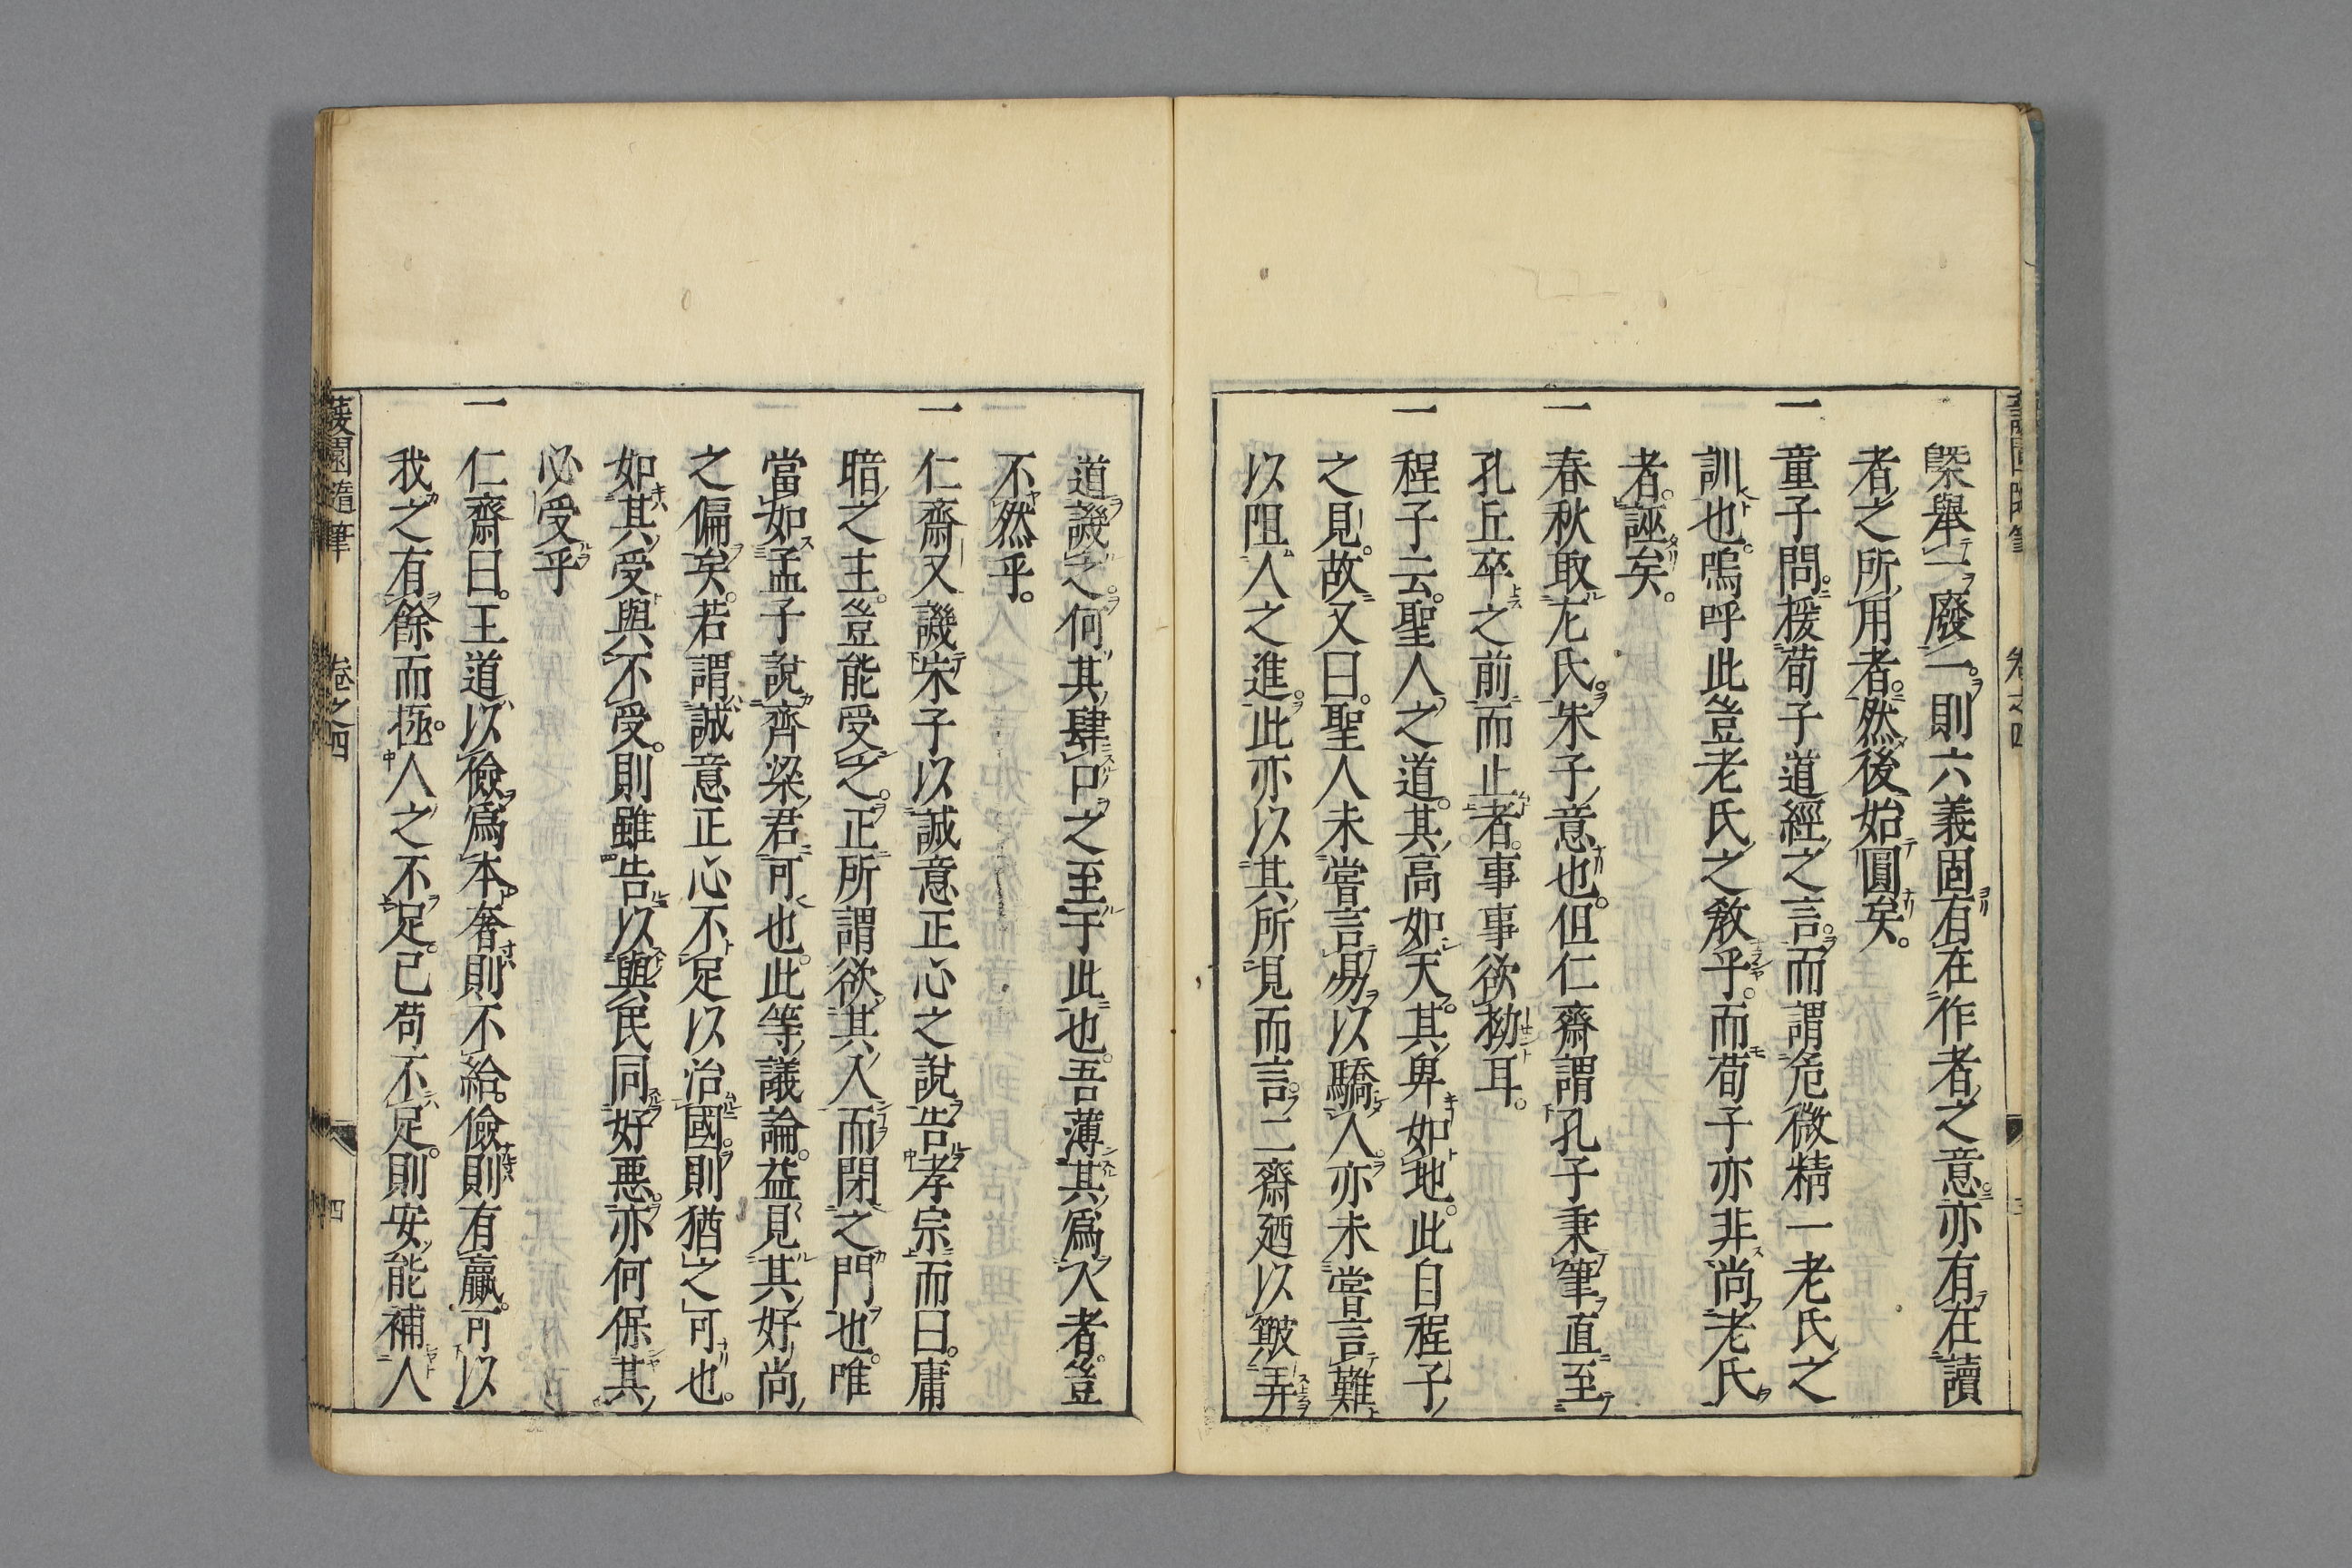 槩舉一廢一。則六義固有在作者之意。亦有在讀
者之所用者。然後始圓矣。
一童子問。援荀子道經之言。而謂危微精一老氏之
訓也。嗚呼此豈老氏之敎乎。而荀子亦非尚老氏
者。誣矣。
一春秋取左氏。朱子意也。但仁齋謂孔子秉筆直至
孔丘卒之前而止者。事事欲拗耳。
一程子云。聖人之道。其高如天。其卑如地。此自程子
之見。故又曰。聖人未嘗言易以驕人。亦未嘗言難
以阻人之進。此亦以其所見而言。二齋廼以皷弄
道譏之。何其肆口之至于此也。吾薄其爲人者。豈
不然乎。
一仁齋又譏宋子以誠意正心之說告孝宗而曰。庸
暗之主。豈能受之。正所謂欲其入而閉之門也。唯
當如孟子說齊梁君可也。此等議論。益見其好尚
之偏矣。若謂誠意正心不足以治國。則猶之可也。
如其受與不受。則雖告以與民同好悪。亦何保其
必受乎
一仁齋曰。王道以儉爲本。奢則不給。儉則有贏。可以
我之有餘而拯。人之不足。己苟不足。則安能補人
蘐園隨筆 卷之四 四